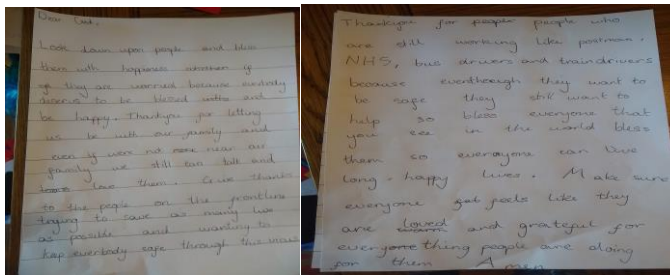 Dear God,
Look down upon people and bless
them with happiness whatever if
they are worried because everbody
deserve to be blessed and
be happy. Thankyou for letting
us be with our family and
even if were not near our
family we still can talk and
love them. Give thanks
to the people on the frontline
trying to save as many live
as possible and wanting to
keep everbody safe through this
Thankyou for people people who
are still working like postman,
NHS, bus drivers and train drivers
because eventhough they want to
be safe they still want to
help so bless everyone that
you see in the world bless
them so everyone can live
long-happy lives. Make sure
everyone feels like they
are loved and grateful for
everything people are doing
for them Amen